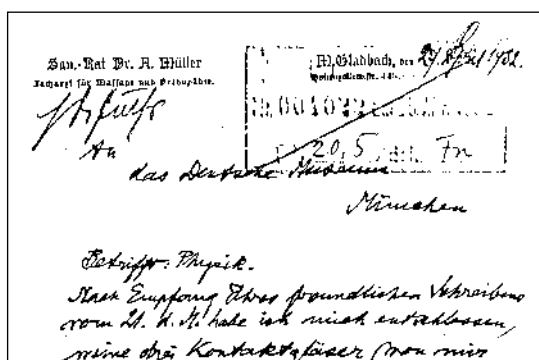 San.-Rat Dr. A. Müller
Facharzt für Massage und Orthopädie.
M. Gladbach, den 29. April 1932.
20,5 Fn
An
das Deutsche Museum
München
Betrifft: Physik.
Nach Empfang Ihres freundlichen Schreibens
vom 21. d. M. habe ich mich entschlossen,
meine drei Kontaktgläser, von mir